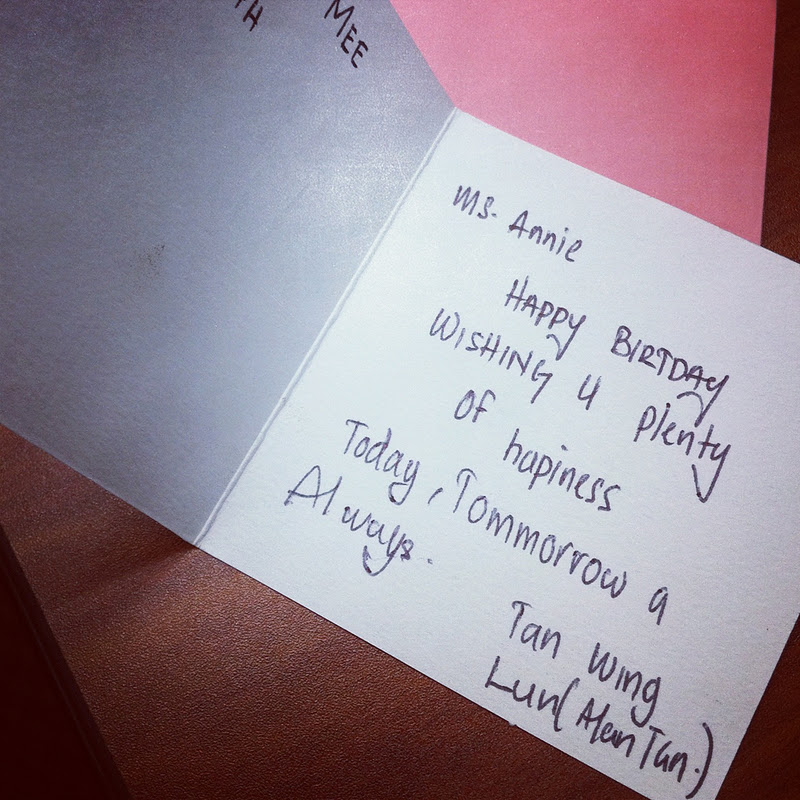 MEE
Ms. Annie
HAPPY BIRTDAY
WISHING U plenty
of hapiness
Today, Tommorrow a
Always.
Tan Wing
Lun (Alan Tan.)